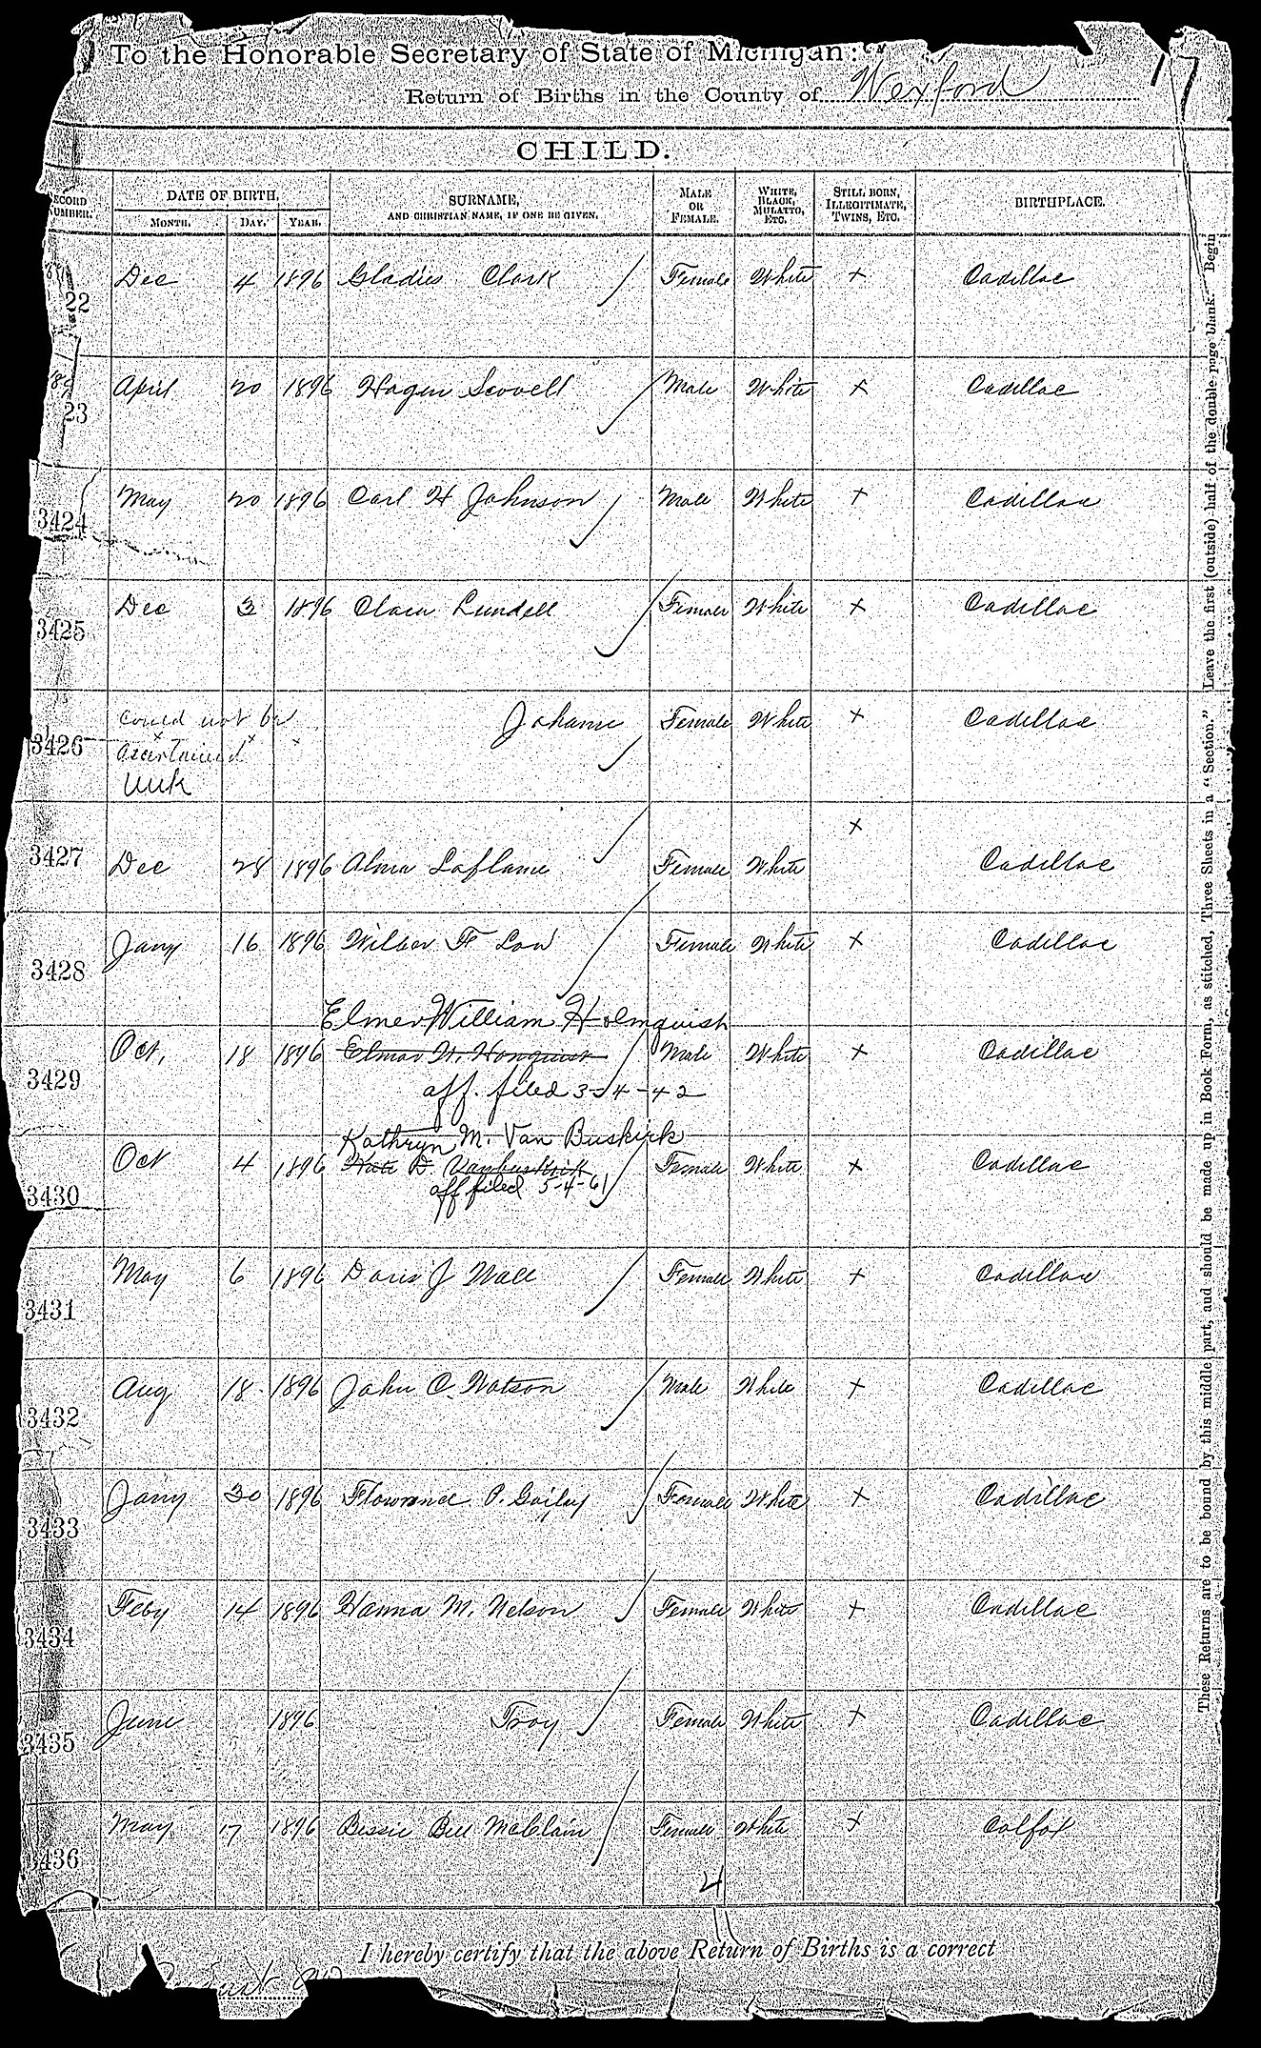 To the Honorable Secretary of State of Michigan:
17
Return of Births in the County of Wexford
CHILD.
RECORD NUMBER. DATE OF BIRTH. SURNAME, AND CHRISTIAN NAME, IF ONE BE GIVEN. MALE OR FEMALE. WHITE, BLACK, MULATTO, ETC. STILL BORN, ILLEGITIMATE, TWINS, ETC. BIRTHPLACE.
MONTH. DAY. YEAR.
22 Dec 4 1896 Gladies Clark Female White x Cadillac
23 April 20 1896 Hagen Scovell Male White x Cadillac
3424 May 20 1896 Carl H Johnson Male White x Cadillac
3425 Dec 3 1896 Clara Lundell Female White x Cadillac
3426 Could not be Johanne Female White x Cadillac
ascertained
Unk
3427 Dec 28 1896 Alma Laflame Female White x Cadillac
3428 Jany 16 1896 Wilber F Low Female White x Cadillac
Elmer William Holmquish
3429 Oct. 18 1896 Elmar W. Honquist Male White x Cadillac
aff. filed 3-4-42
Kathryn M. Van Buskirk
3430 Oct 4 1896 Kate D. Vanbuskirk Female White x Cadillac
aff filed 5-4-61
3431 May 6 1896 Doris J Wall Female White x Cadillac
3432 Aug 18 1896 John O. Watson Male White x Cadillac
3433 Jany 30 1896 P. Female White x Cadillac
3434 Feby 14 1896 Hanna M. Nelson Female White x Cadillac
3435 June 1896 Troy Female White x Cadillac
3436 May 17 1896 Bessie Bell McClain Female White x Colfax
4
I hereby certify that the above Return of Births is a correct
These Returns are to be bound by this middle part, and should be made up in Book Form, as stitched, Three Sheets in a "Section." Leave the first (outside) half of the double page blank. Begin